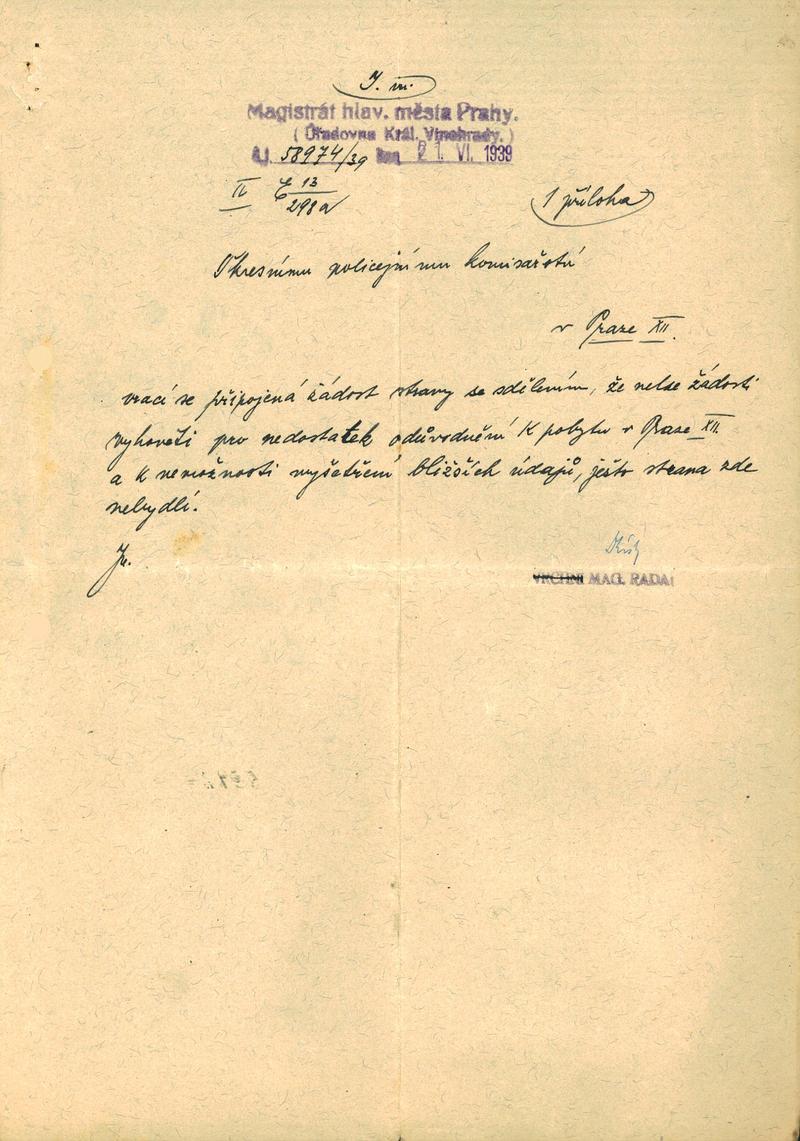 Magistrát hlav. města Prahy.
( Úřadovna Král. Vinohrady. )
čj. 58974/39 dne 21. VI. 1939
II E 13
298a
1 příloha
Okresnímu policejnímu komisařství
v Praze XII.
vrací se připojená žádost strany se sdělením, že nelze žádosti
vyhověti pro nedostatek odůvodnění k pobytu v Praze XII.
a k nemožnosti vyšetření bližších údajů, ješto strana zde
nebydlí.
VRCHNÍ MAG. RADA: